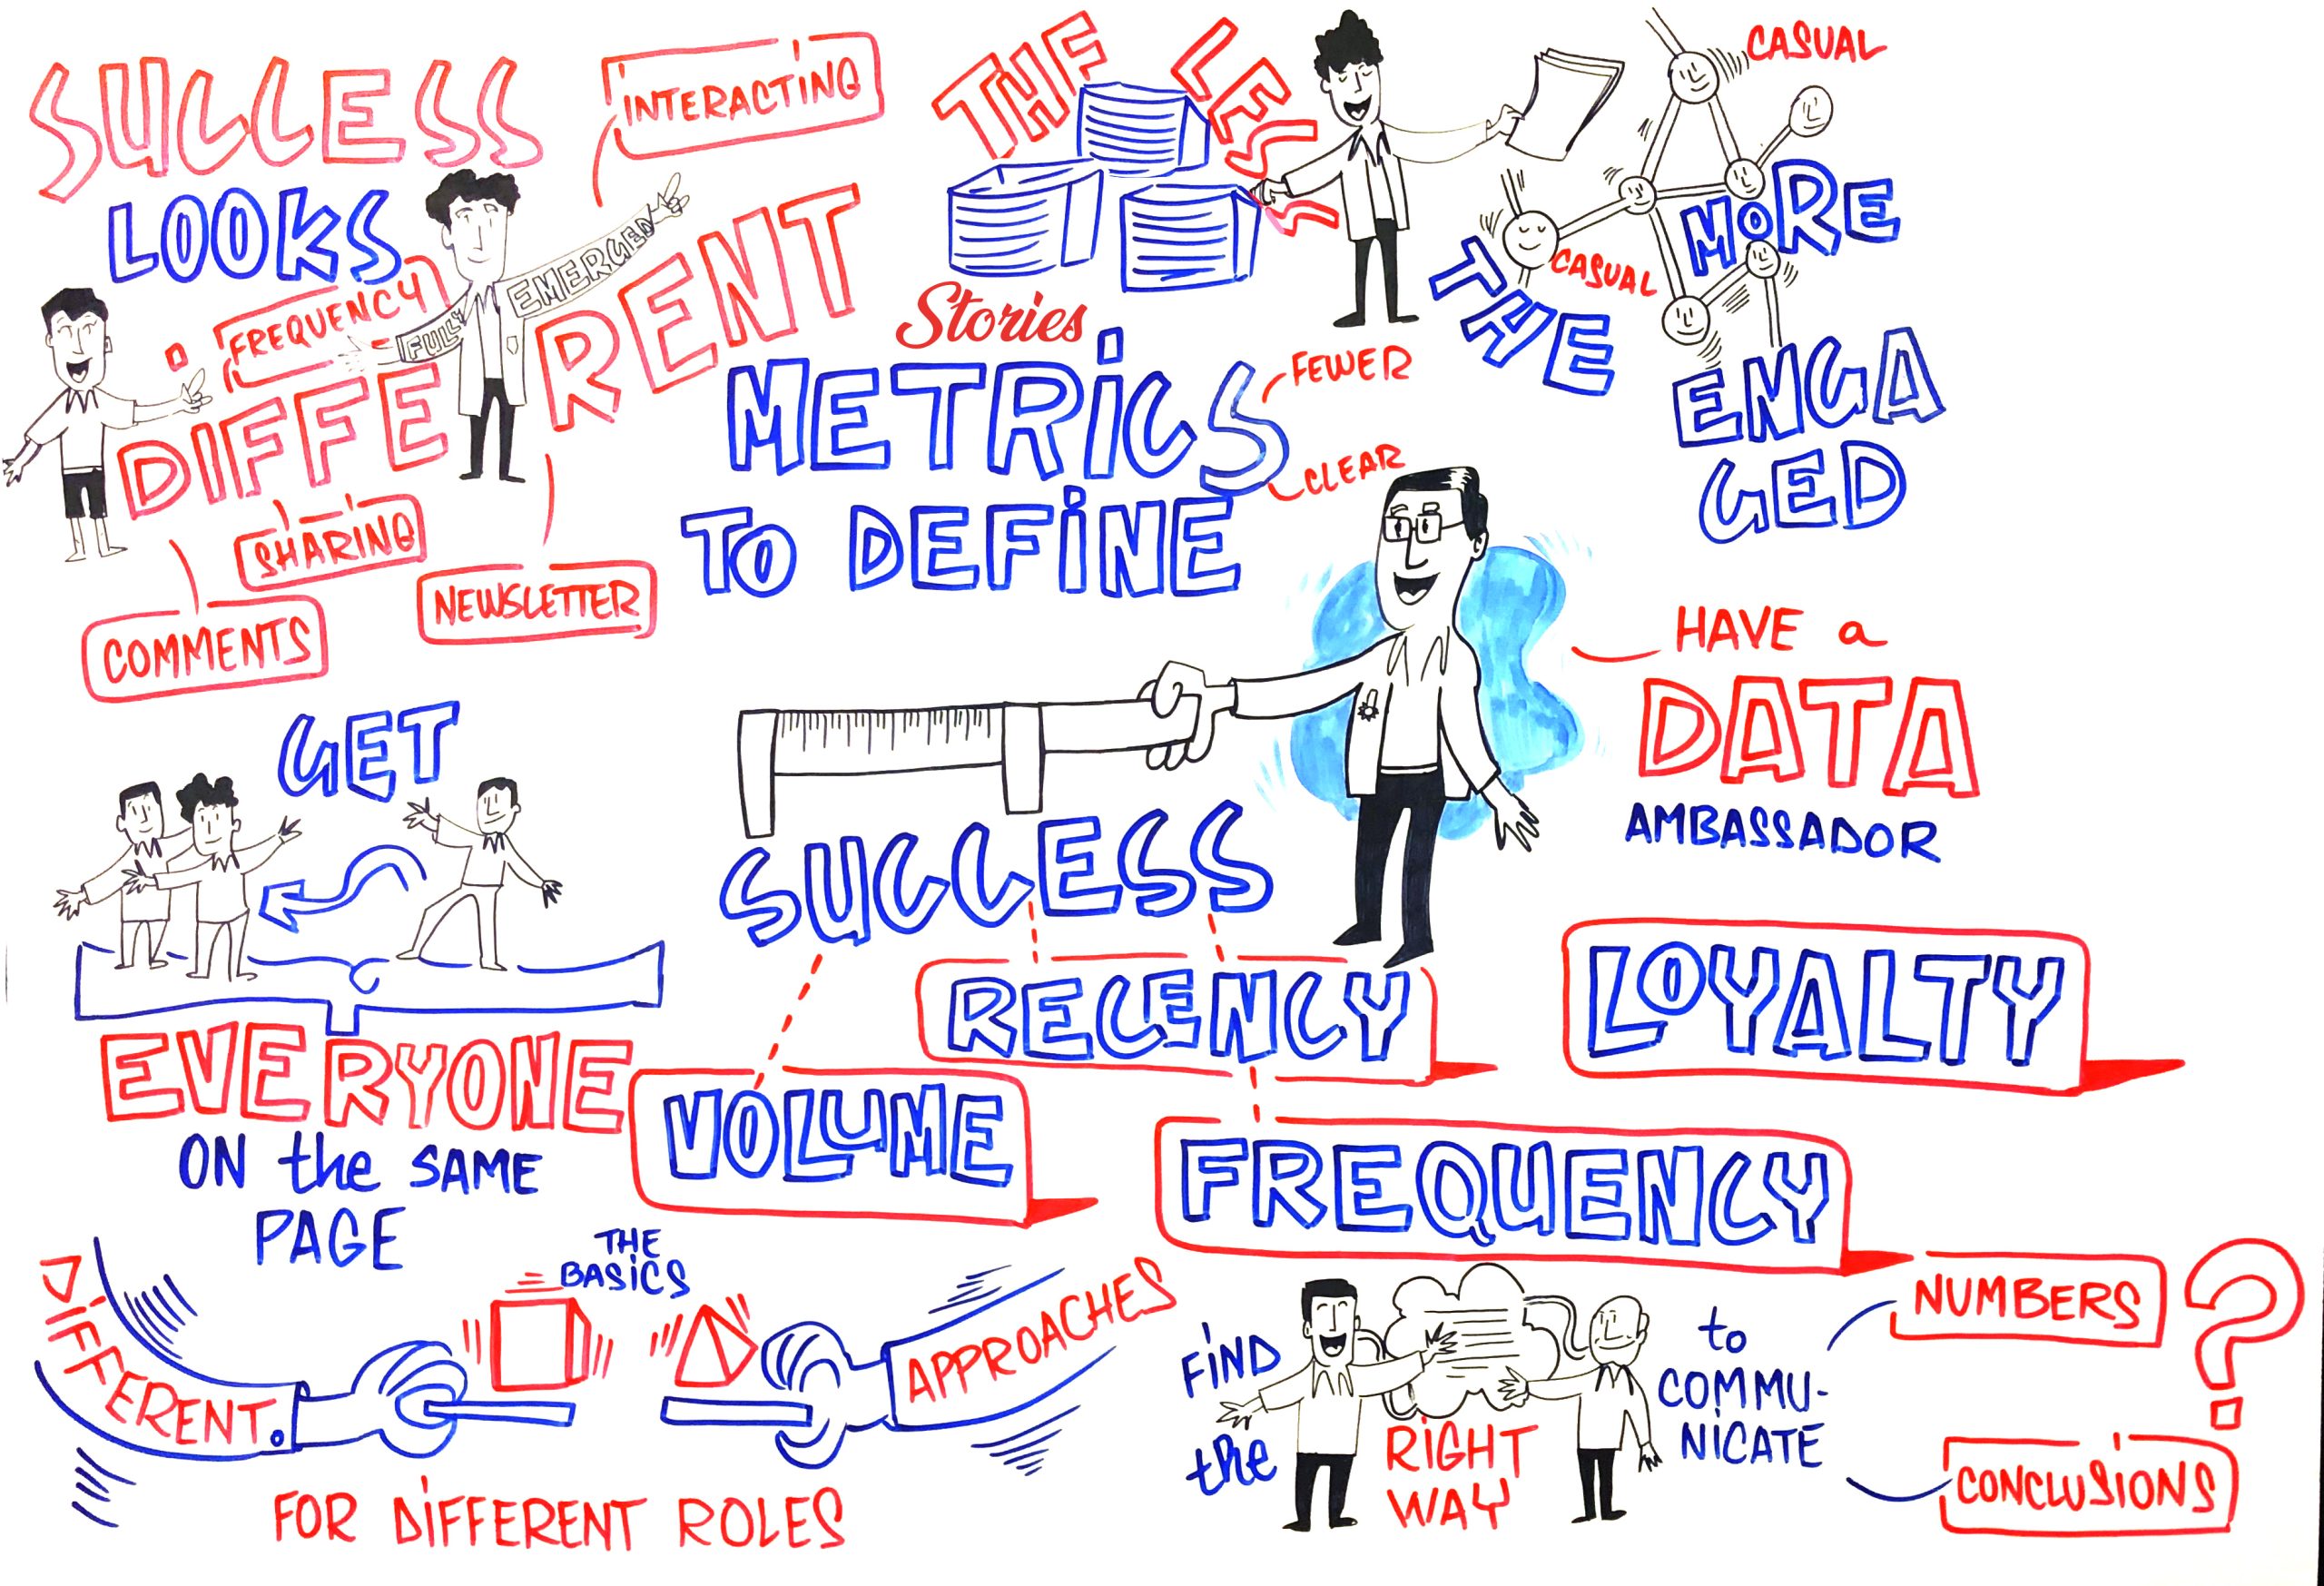 SUCCESS
LOOKS
DIFFERENT
INTERACTING
FREQUENCY
FULLY
EMERGED
SHARING
COMMENTS
NEWSLETTER
THE LESS
Stories
THE MORE
ENGA
GED
CASUAL
CASUAL
METRICS
TO DEFINE
SUCCESS
FEWER
CLEAR
HAVE a
DATA
AMBASSADOR
GET
EVERYONE
ON the SAME
PAGE
VOLUME
RECENCY
FREQUENCY
LOYALTY
DIFFERENT.
THE
BASICS
APPROACHES
FOR DIFFERENT ROLES
FIND
the
RIGHT
WAY
to
COMMU-
NICATE
NUMBERS
CONCLUSIONS
?